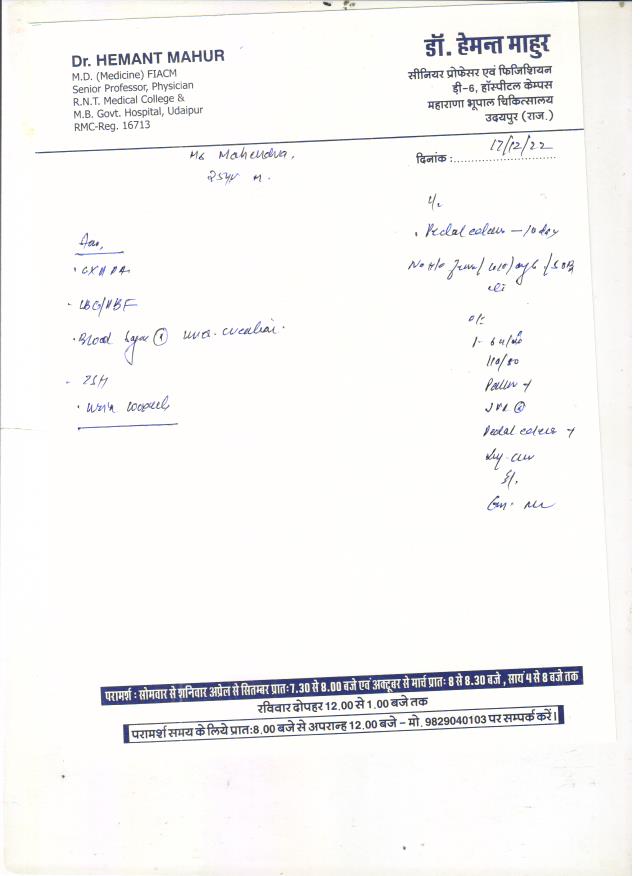 Dr. HEMANT MAHUR
M.D. (Medicine) FIACM
Senior Professor, Physician
R.N.T. Medical College &
M.B. Govt. Hospital, Udaipur
RMC-Reg. 16713
डॉ. हेमन्त माहुर
सीनियर प्रोफेसर एवं फिजिशियन
डी-6, हॉस्पीटल केम्पस
महाराणा भूपाल चिकित्सालय
उदयपुर (राज.)
दिनांक : 17/12/22
Mr Mahendra,
25yr M.
Adv,
• CXR PA
• CBC/PBF
• Blood Sugar urea. creatinine.
- TSH
• Urine complete
• Pedal edema – 10 day
No H/o fever/
O/E
110/80
Pallor +
JVP
Pedal edema +
परामर्श : सोमवार से शनिवार अप्रेल से सितम्बर प्रातः 7.30 से 8.00 बजे एवं अक्टूबर से मार्च प्रातः 8 से 8.30 बजे , सायं 4 से 8 बजे तक
रविवार दोपहर 12.00 से 1.00 बजे तक
परामर्श समय के लिये प्रातः 8.00 बजे से अपरान्ह 12.00 बजे – मो. 9829040103 पर सम्पर्क करें।